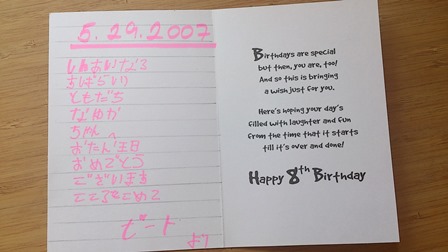 5.29.2007
しんあいなる
ともだち
なゆか
ちゃん。
おたん生日
おめでとう
ございます
こころをこめて
より
Birthdays are special
but then, you are, too!
And so this is bringing
a wish just for you.
Here's hoping your day's
filled with laughter and fun
from the time that it starts
till it's over and done!
Happy 8th Birthday